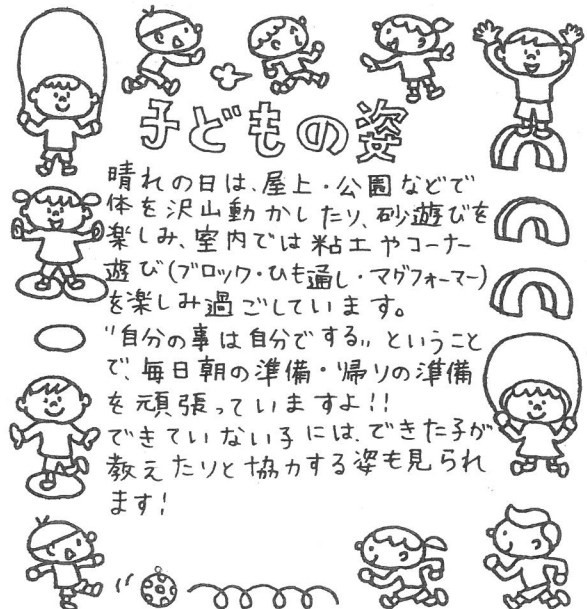 子どもの姿
晴れの日は、屋上・公園などで
体を沢山動かしたり、砂遊びを
楽しみ、室内では粘土やコーナー
遊び(ブロック・ひも通し・マグフォーマー)
を楽しみ過ごしています。
"自分の事は自分でする„ということ
で、毎日朝の準備・帰りの準備
を頑張っていますよ!!
できていない子には、できた子が
教えたりと協力する姿も見られ
ます!